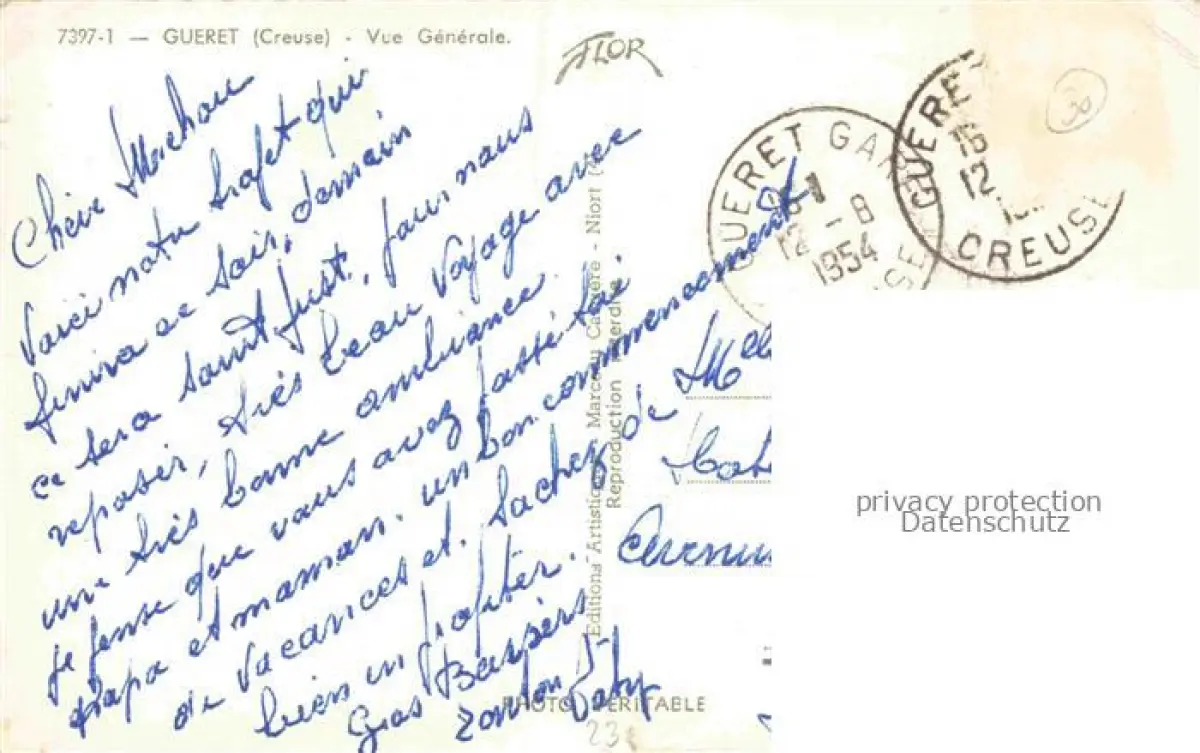 7397-1 — GUERET (Creuse) - Vue Générale.
FLOR
Chère Machou
Voici notre trajet qui
finira ce soir, demain
ce sera Saint Just, pour nous
reposer, très beau voyage avec
une très bonne ambiance.
je pense que vous avez passé toi
Papa et maman. un bon commencement
de vacances et. sachez
bien en profiter.
Gros Baisers
Editions Artistiques Marcou - Niort
Reproduction interdite
PHOTO VERITABLE
23
GUERET GARE
12 - 8
1954
GUERET
16
12
CREUSE
30
Melle
Avenu
privacy protection
Datenschutz